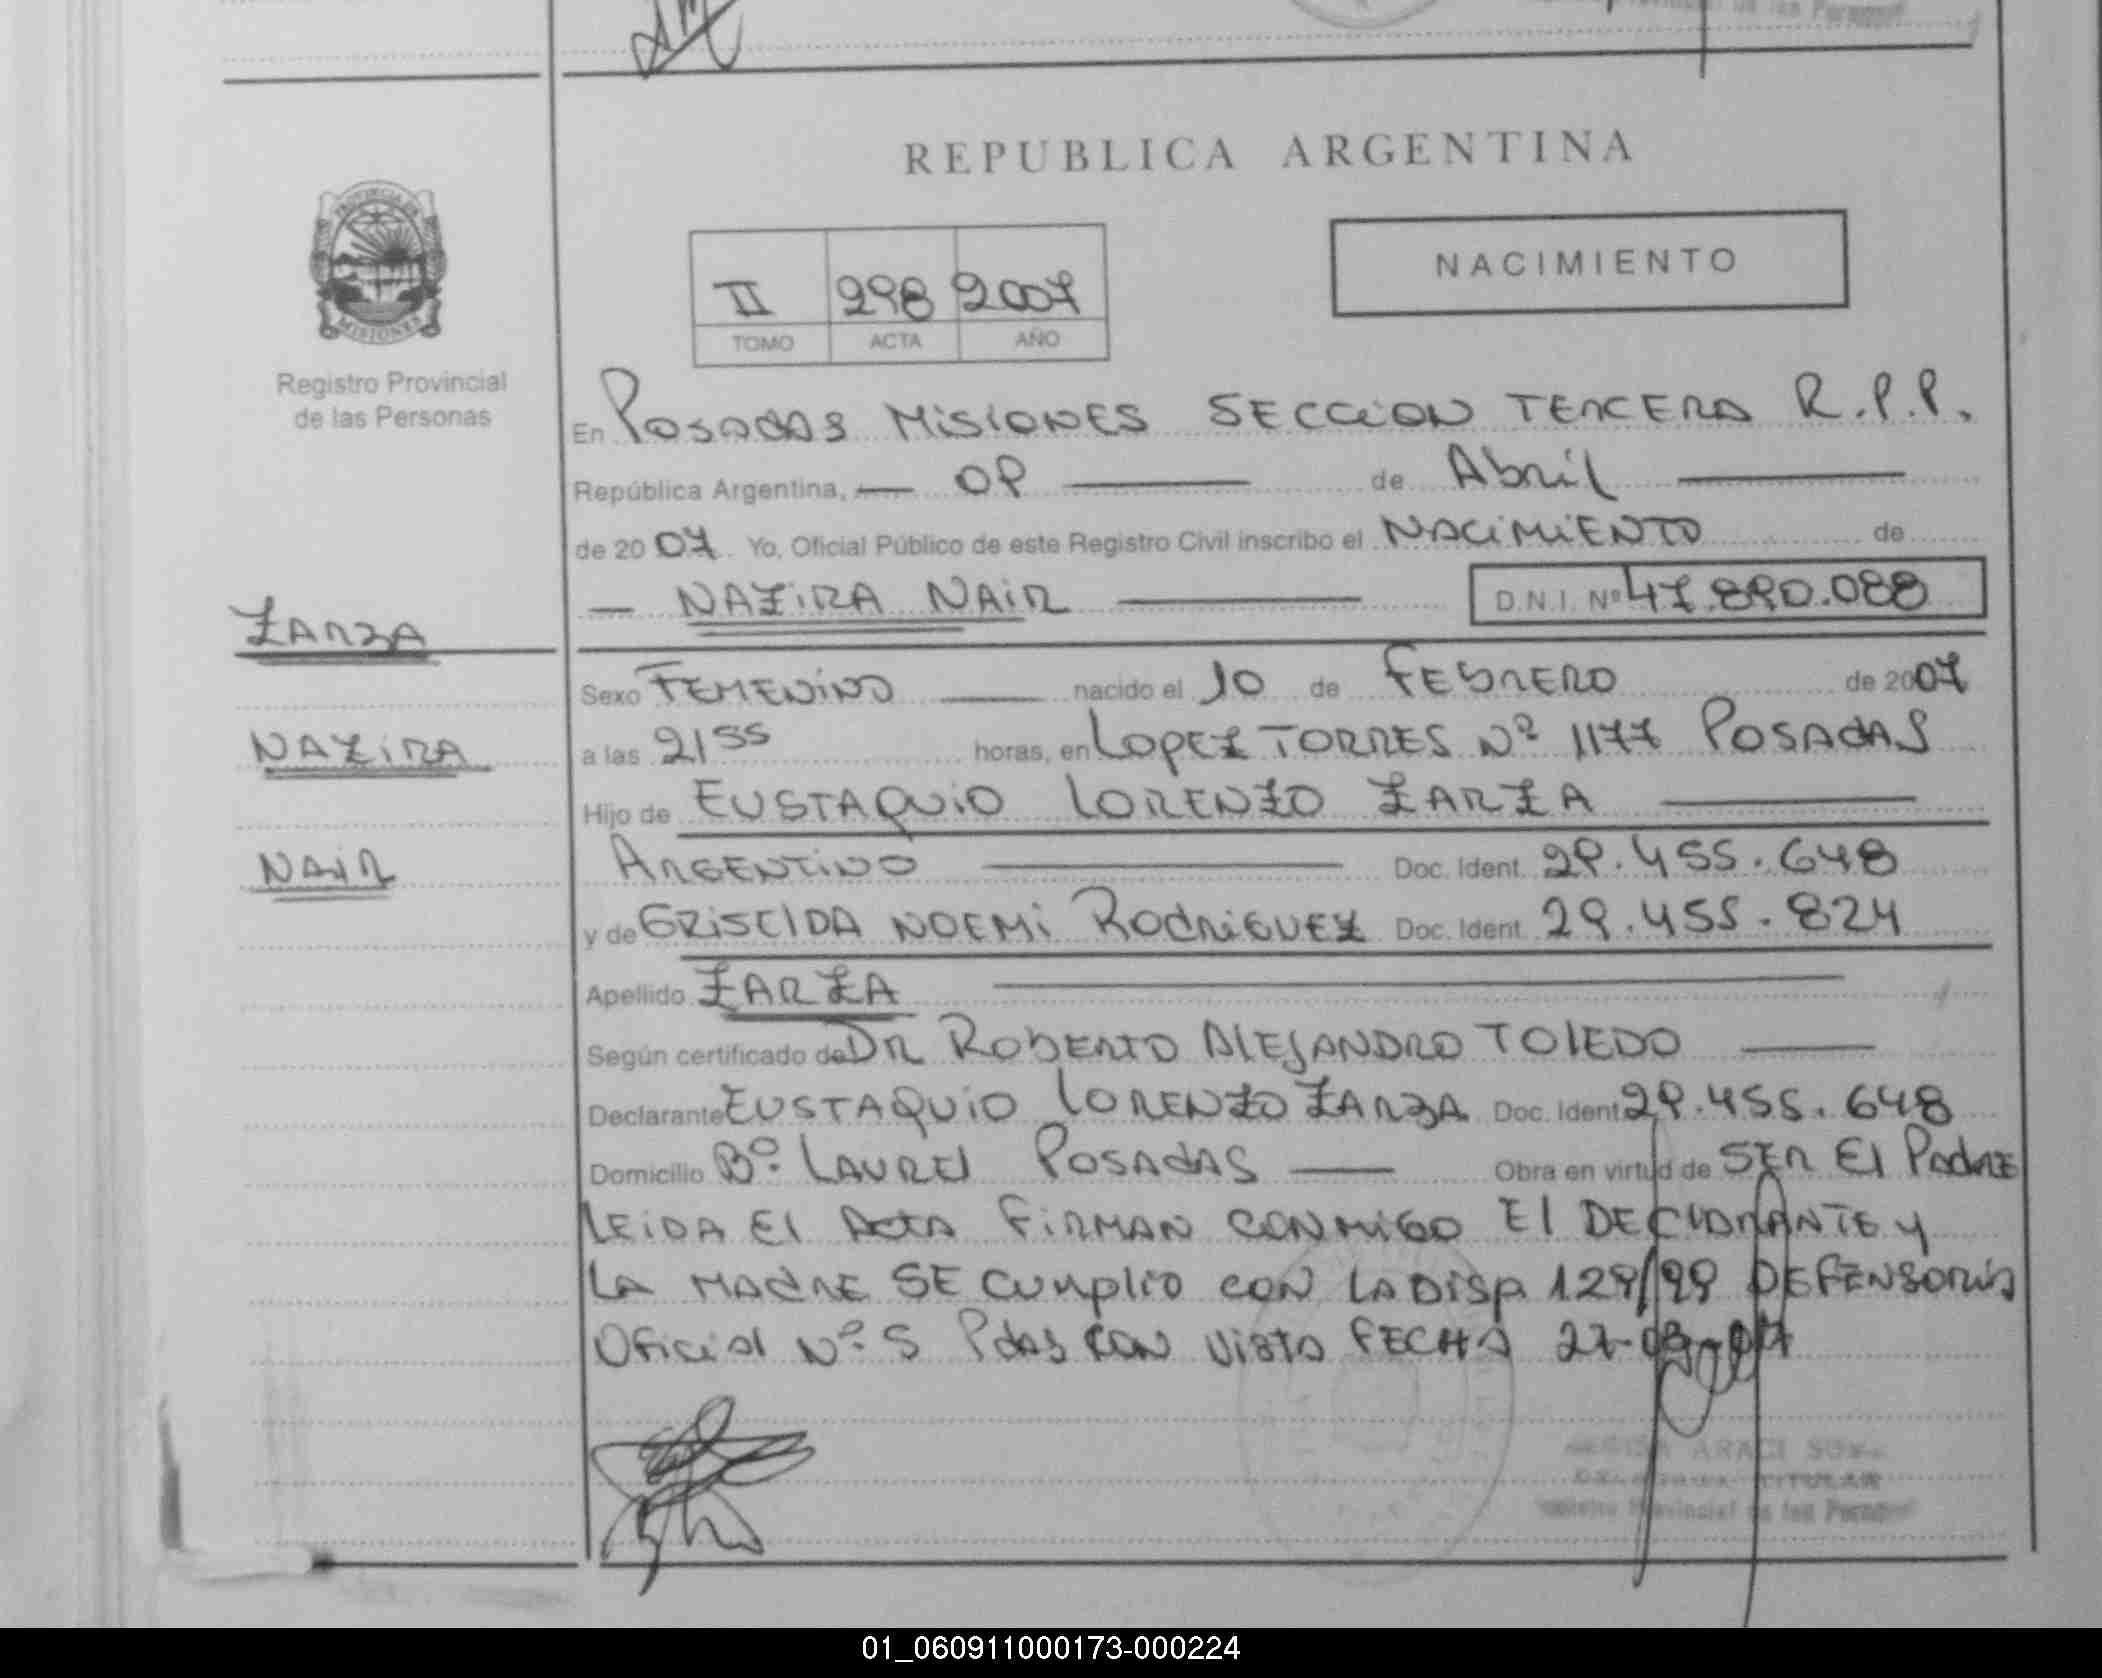 REPUBLICA ARGENTINA
NACIMIENTO
PROVINCIA DE
MISIONES
Registro Provincial
de las Personas
II 298 2007
TOMO ACTA AÑO
En POSADAS MISIONES SECCION TERCERA R.P.P.
República Argentina, — 09 — de Abril —
de 2007 Yo, Oficial Público de este Registro Civil inscribo el NACIMIENTO de
— NAZIRA NAIR — D.N.I. Nº 47.890.088
ZARZA
NAZIRA
NAIR
Sexo FEMENINO — nacido el 10 de FEBRERO de 2007
a las 21 55 horas, en LOPEZ TORRES Nº 1177 POSADAS
Hijo de EUSTAQUIO LORENZO ZARZA —
ARGENTINO — Doc. Ident. 29.455.648
y de GRISCIDA NOEMI RODRIGUEZ Doc. Ident. 29.455.824
Apellido ZARZA —
Según certificado de DR ROBERTO ALEJANDRO TOLEDO —
Declarante EUSTAQUIO LORENZO ZARZA Doc. Ident 29.455.648
Domicilio Bº LAUREL POSADAS — Obra en virtud de SER El PADRE
LEIDA El ACTA FIRMAN CONMIGO El DECLARANTE y
LA MADRE SE CUMPLIO CON LA DISP. 129/99 DEFENSORIA
Oficial Nº 5 Pdas CON VISTO FECHA 27-03-07
ARACI
TITULAR
Provincial de las
01_060911000173-000224